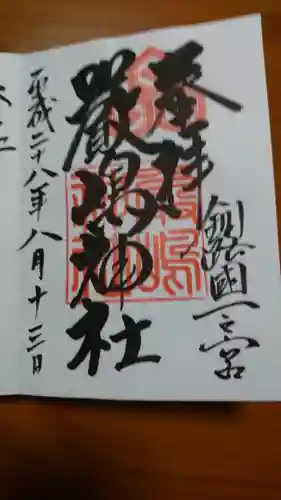 奉拝
釧路國一之宮
嚴嶋神社
平成二十八年八月十三日